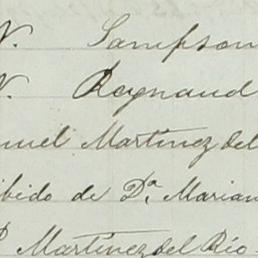 N. Sampson
N. Reynaud
nuel Martinez del
ibido de D.ª Marian
P. Martinez del Rio